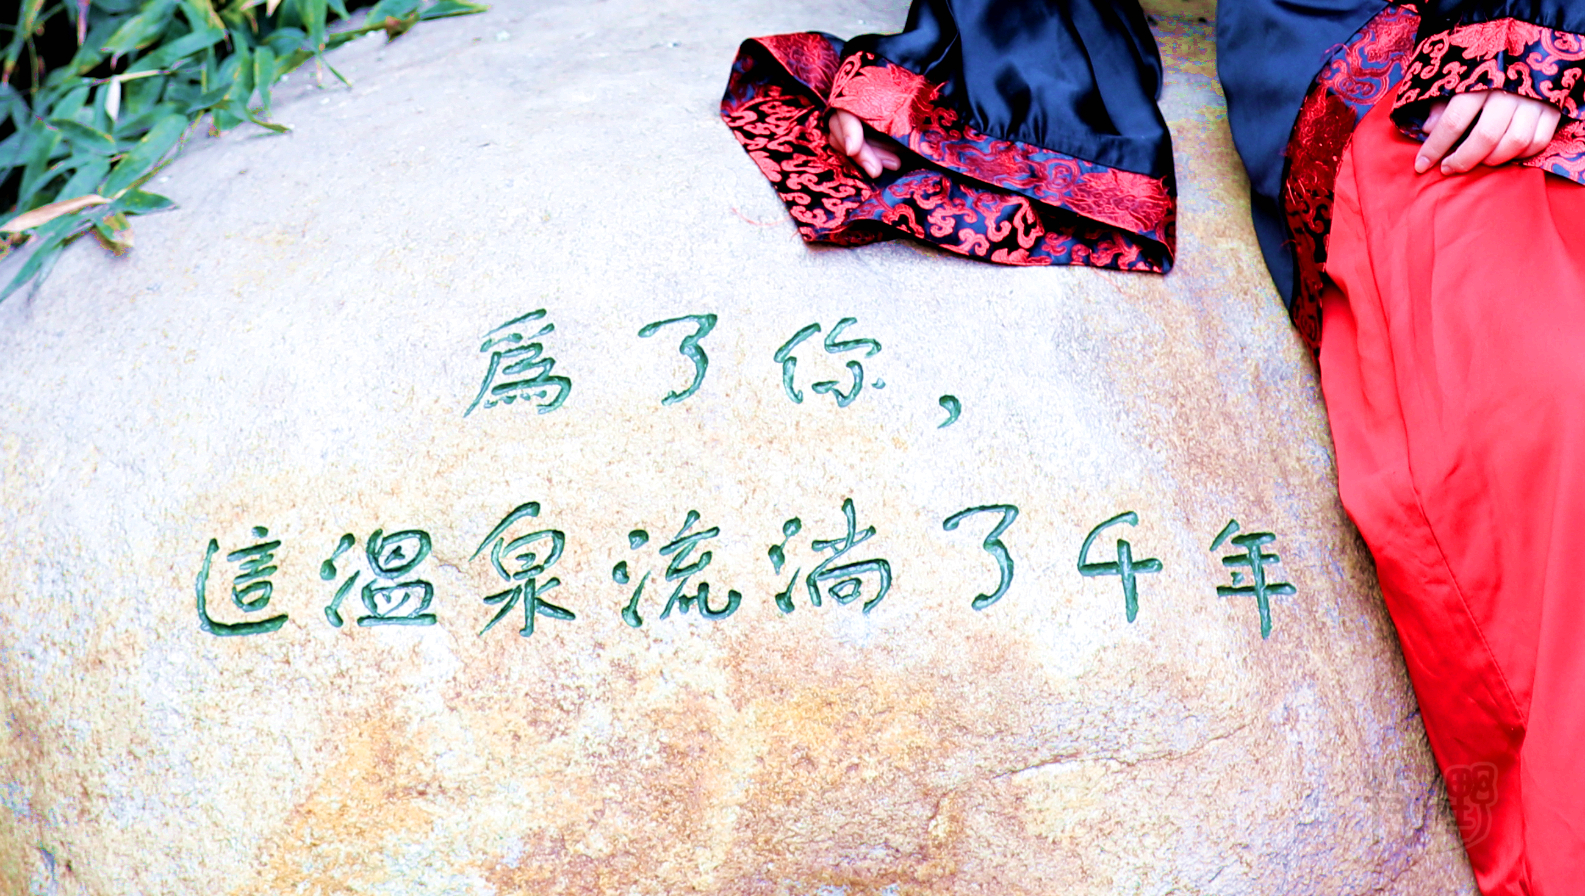 為了你，
這溫泉流淌了千年